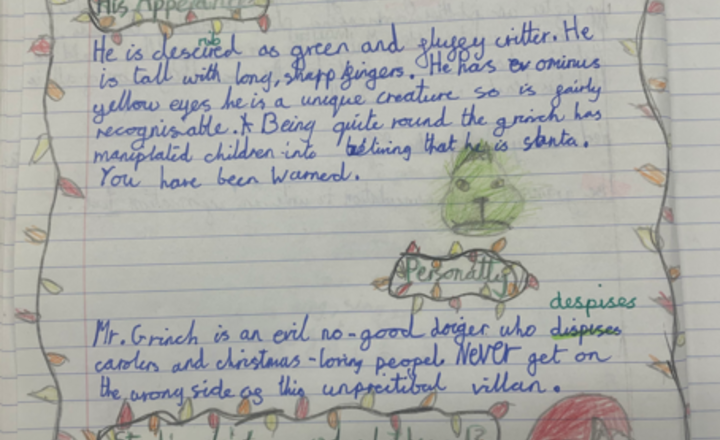 His Appearance
He is descried as green and fluffy critter. He
rib
is tall with long, sharp fingers. He has ominus
yellow eyes he is a unique creature so is fairly
recognisable. * Being quite round the grinch has
maniplated children into beliving that he is santa.
You have been warned.
Personalty
despises
Mr. Grinch is an evil no-good doiger who dispises
carolers and christmas-loving peopel. NEVER get on
the wrong side of this unpreitibal villan.